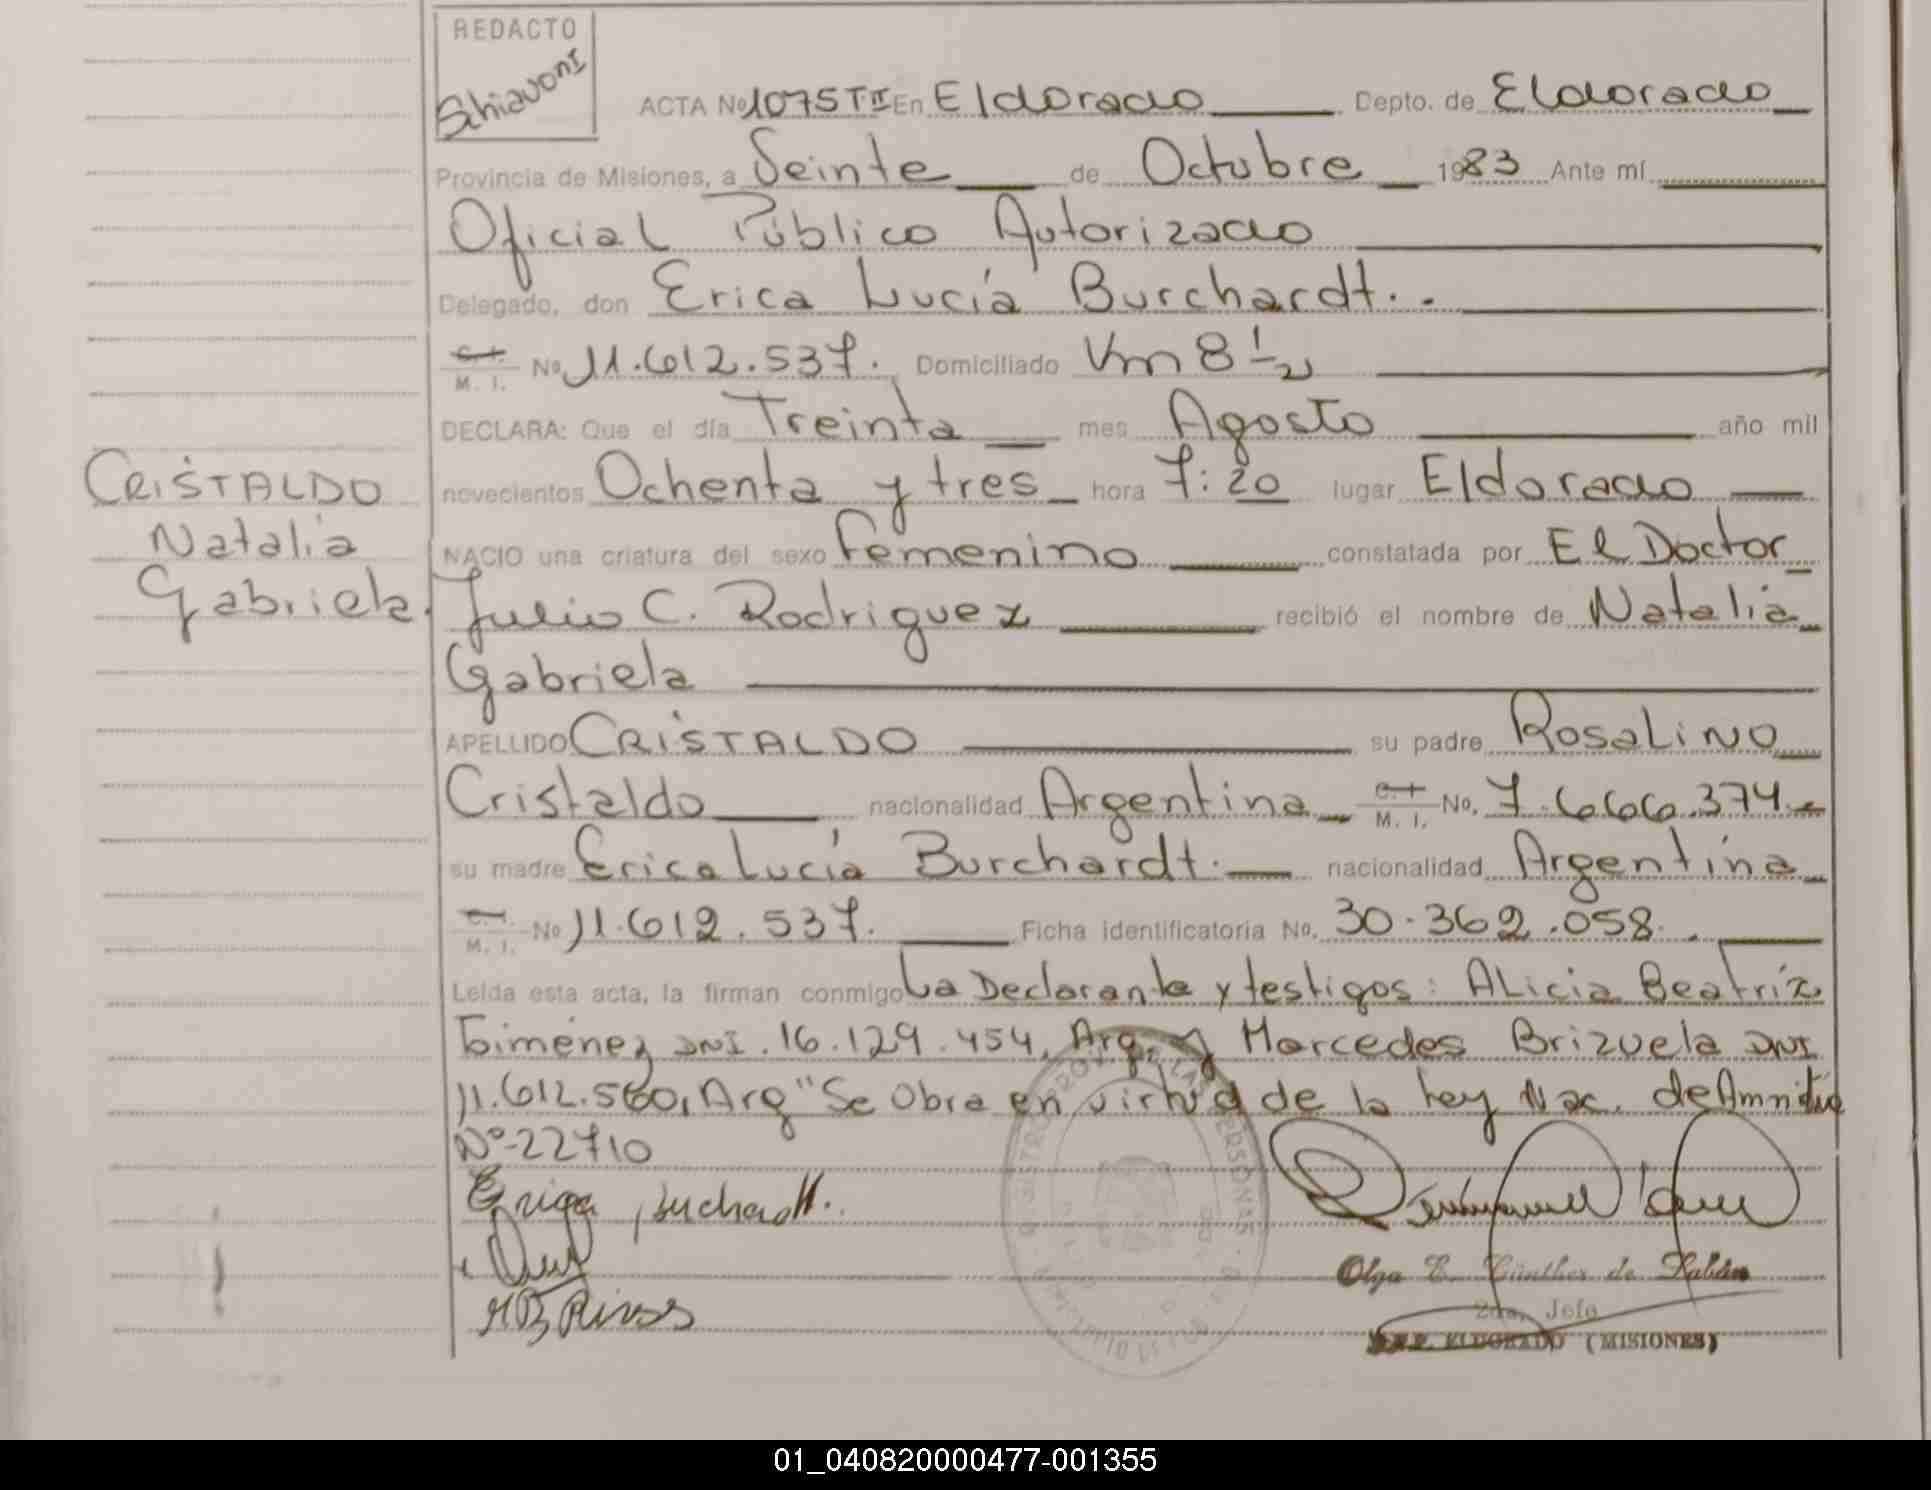 REDACTO
Schiavoni
ACTA Nº 1075 T II En Eldorado Depto. de Eldorado
Provincia de Misiones, a Veinte de Octubre 1983 Ante mí
Oficial Público Autorizado
Delegado, don Erica Lucía Burchardt..
C. I. M. I. Nº 11.612.537. Domiciliado Km 8 1/2
DECLARA: Que el día Treinta mes Agosto año mil
novecientos Ochenta y tres hora 7:20 lugar Eldorado
CRISTALDO
Natalia
Gabriela.
NACIO una criatura del sexo femenino constatada por El Doctor
Julio C. Rodriguez recibió el nombre de Natalia
Gabriela
APELLIDO CRISTALDO su padre Rosalino
Cristaldo nacionalidad Argentina C. I. M. I. No. 7.666.374.
su madre Erica Lucía Burchardt. nacionalidad Argentina
C. I. M. I. Nº 11.612.537. Ficha identificatoria No. 30.362.058.
Leída esta acta, la firman conmigo La Declarante y testigos: Alicia Beatriz
Gimenez DNI. 16.129.454, Arg. y Mercedes Brizuela DNI
11.612.560, Arg "Se Obra en virtud de la Ley Nac. de Amnitia
Nº-22710
Erica Burchardt.
Olga E. Günther de
2da. Jefe
ELDORADO (MISIONES)
01_040820000477-001355